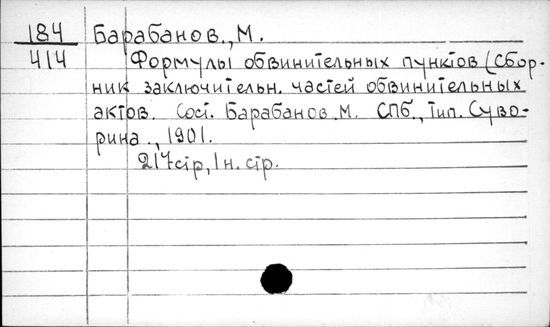 184 Барабанов., М.
414 Формулы обвинительных пунктов (Сбор-
ник заключительн. частей обвинительных
актов. Сост. Барабанов М. СПб., тип. Суво-
рина., 1901.
217стр, 1 н. стр.